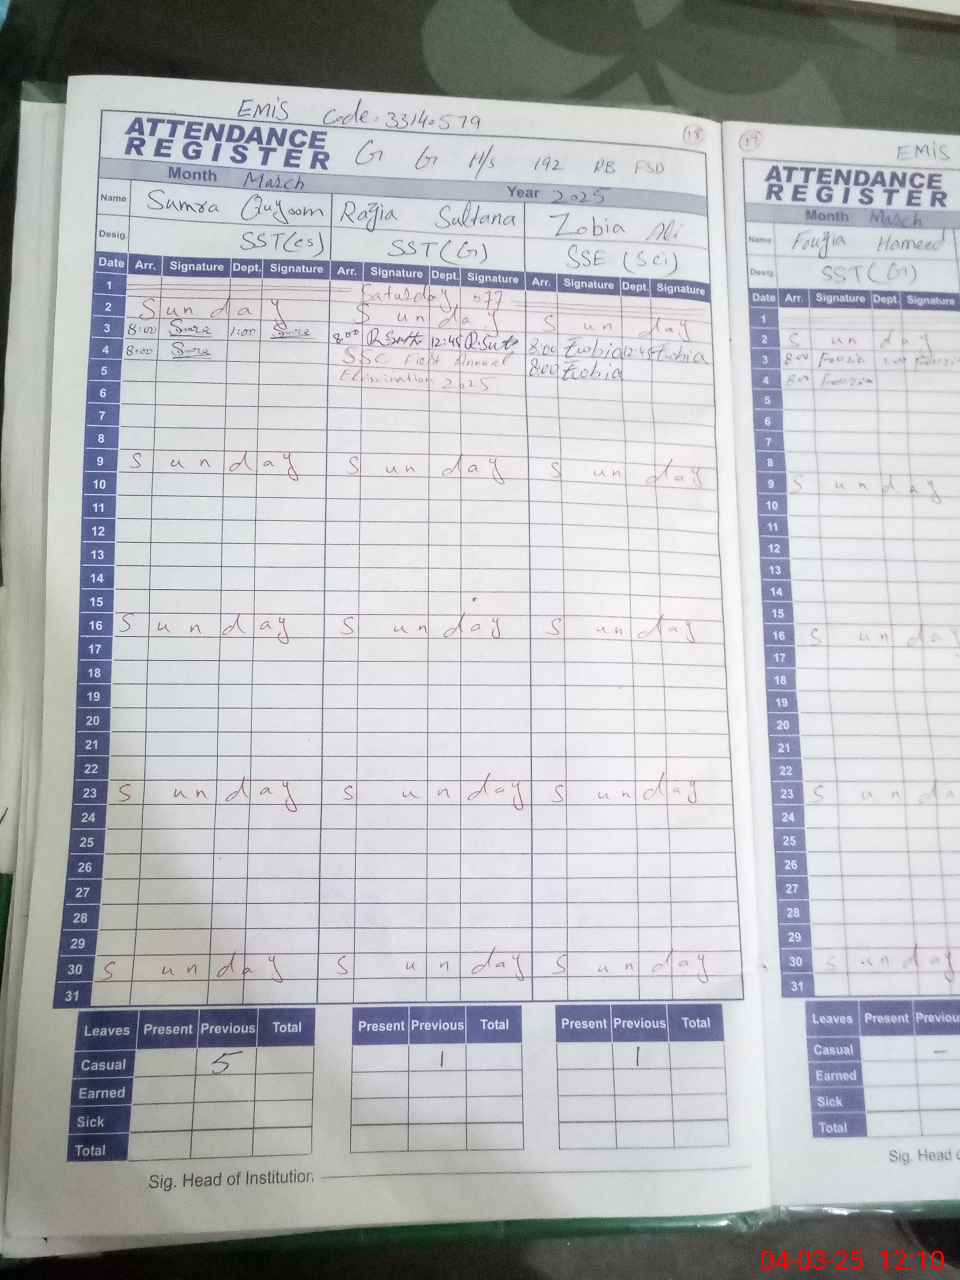 EMIS Code. 33140579
18
ATTENDANCE REGISTER
G G H/s 192 RB FSD
Month March Year 2025
Name Sumra Quyoom Razia Sultana Zobia Ali
Desig SST(cs) SST(G) SSE (Sci)
Date Arr. Signature Dept. Signature Arr. Signature Dept. Signature Arr. Signature Dept. Signature
1 Saturday off
2 Sunday Sunday Sunday
3 8:00 1:00 8:00 12:45 8:00 Zobia 12:45 Zobia
4 8:00 SSC First Annual 8:00 Zobia
5 Examination 2025
6
7
8
9 Sunday Sunday Sunday
10
11
12
13
14
15
16 Sunday Sunday Sunday
17
18
19
20
21
22
23 Sunday Sunday Sunday
24
25
26
27
28
29
30 Sunday Sunday Sunday
31
Leaves Present Previous Total Present Previous Total Present Previous Total
Casual 5 1 1
Earned
Sick
Total
Sig. Head of Institution
19
EMIS
ATTENDANCE REGISTER
Month March
Name Fouzia Hameed
Desig SST(G)
Date Arr. Signature Dept. Signature
1
2 Sunday
3 8:00 Fouzia 1:00 Fouzia
4 8:00 Fouzia
5
6
7
8
9 Sunday
10
11
12
13
14
15
16 Sunday
17
18
19
20
21
22
23 Sunda
24
25
26
27
28
29
30 Sunday
31
Leaves Present Previou
Casual -
Earned
Sick
Total
Sig. Head
04-03-25 12:10